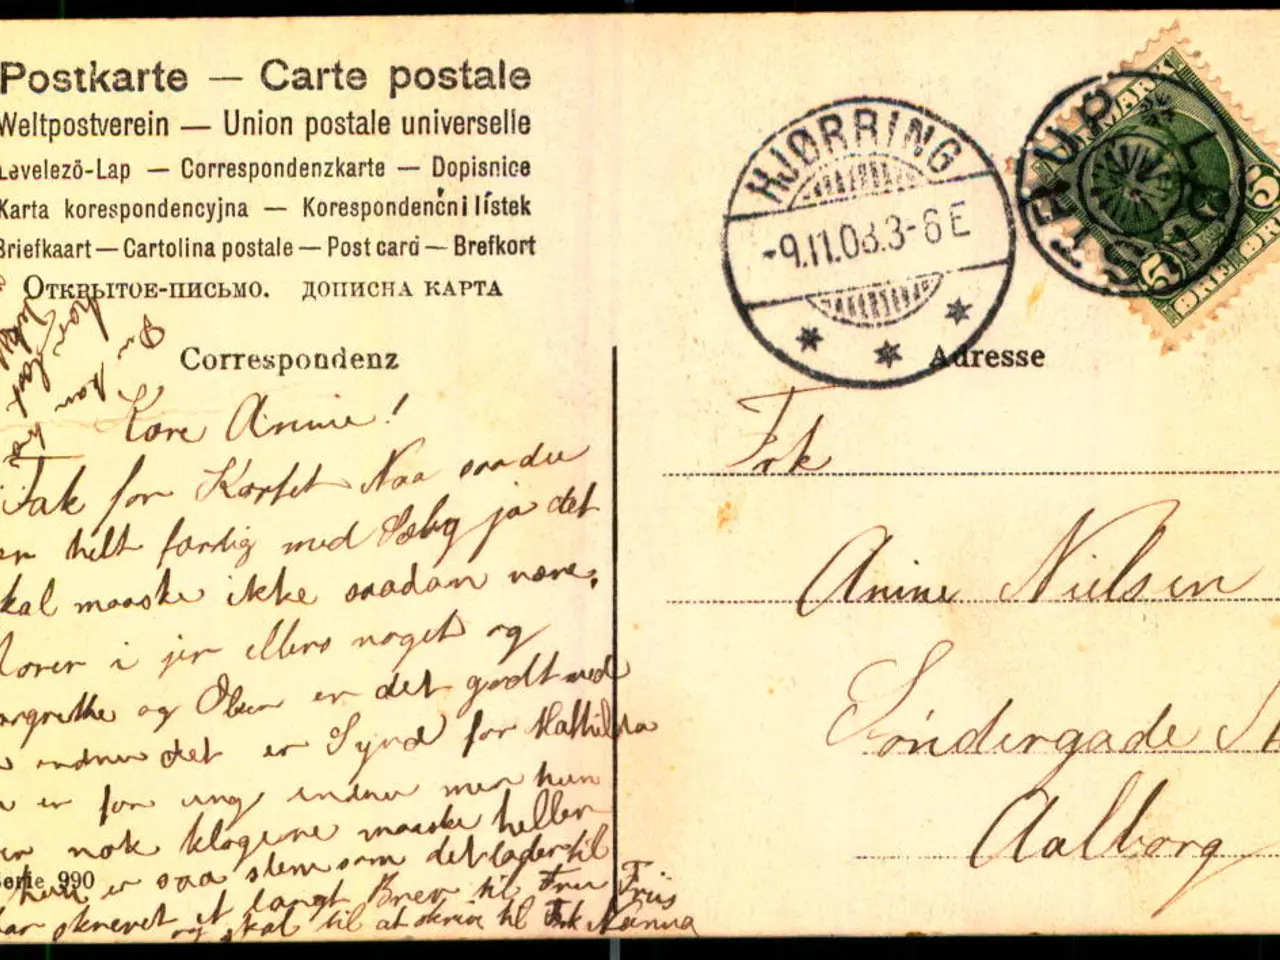 Postkarte — Carte postale
Weltpostverein — Union postale universelle
Levelező-Lap — Correspondenzkarte — Dopisnice
Karta korespondencyjna — Korespondenční lístek
Briefkaart — Cartolina postale — Post card — Brefkort
Открытое-письмо. дописна карта
Correspondenz
HJØRRING
-9.11.08.3-6E
STRUP
DANMARK
5
5
BREF
Adresse
Kære Anine!
Tak for Kortet Naa saa du
er helt færdig med Sæby ja det
skal maaske ikke saadan være.
i jer ellers noget og
Margrethe og Olsen er det godt med
endnu det er Synd for Mathilda
er for ung endnu men hun
er nok klogere maaske heller
hun er saa slem som det lader til
har skrevet et langt Brev til Fru Friis
og skal til at skrive til Frk Nanna
Serie 990
Frk
Anine Nielsen
Søndergade
Aalborg